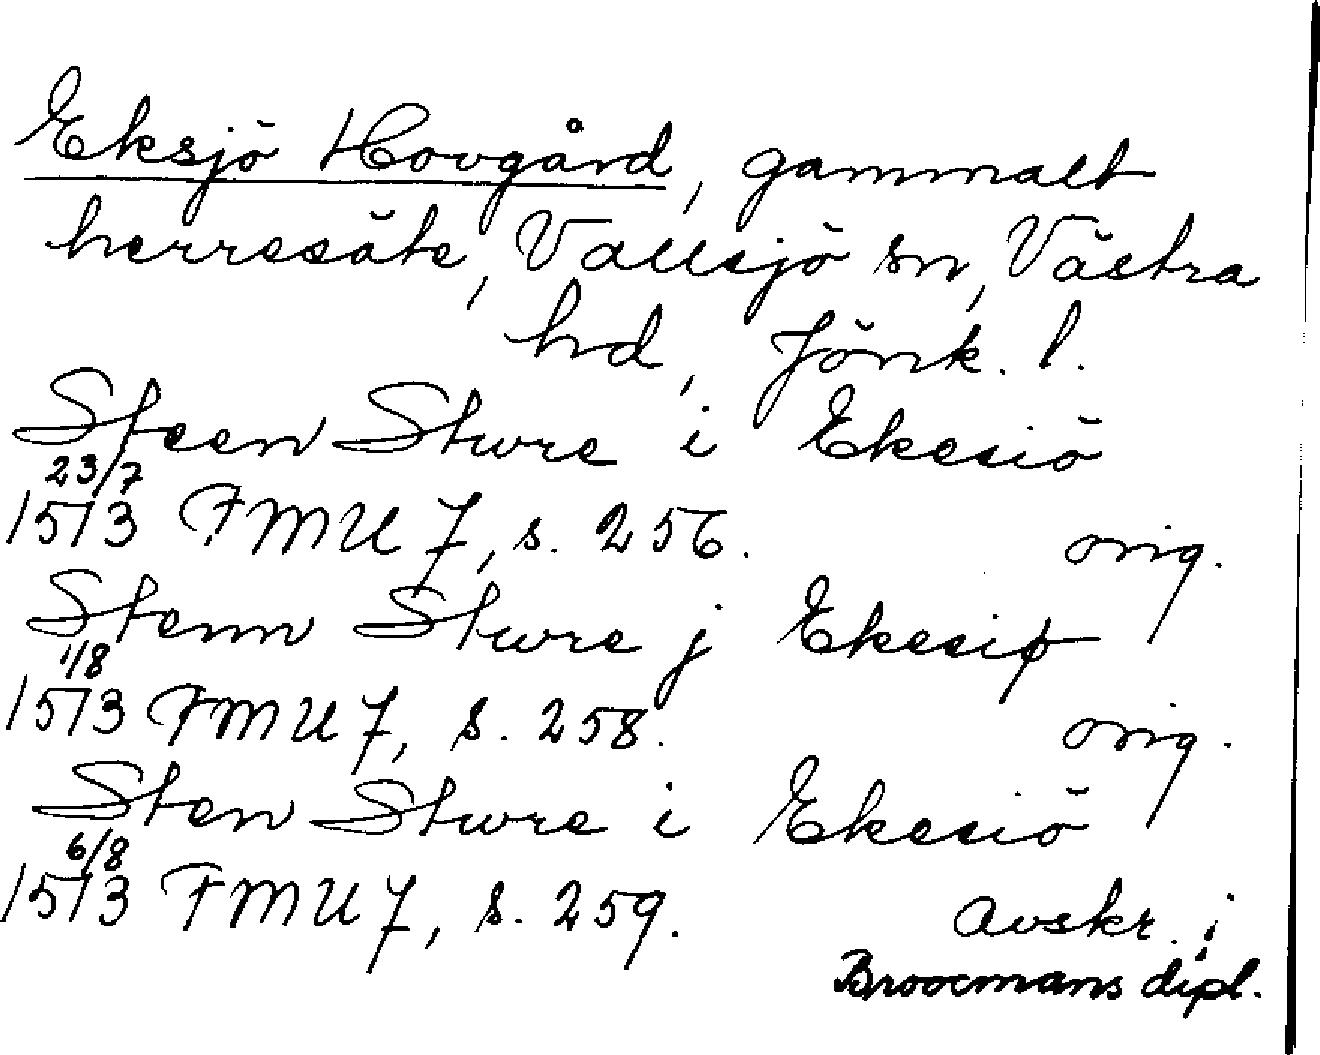 Eksjö Hovgård, gammalt
herresäte, Vallsjö sn, Västra
hd, Jönk. l.
Steen Sture i Ekesiö
23/7
1513 FMU 7, s. 256. orig.
Stenn Sture j Ekesiø
1/8
1513 FMU 7, s. 258. orig.
Sten Sture i Ekesiö
6/8
1513 FMU 7, s. 259. avskr. i
Broocmans dipl.